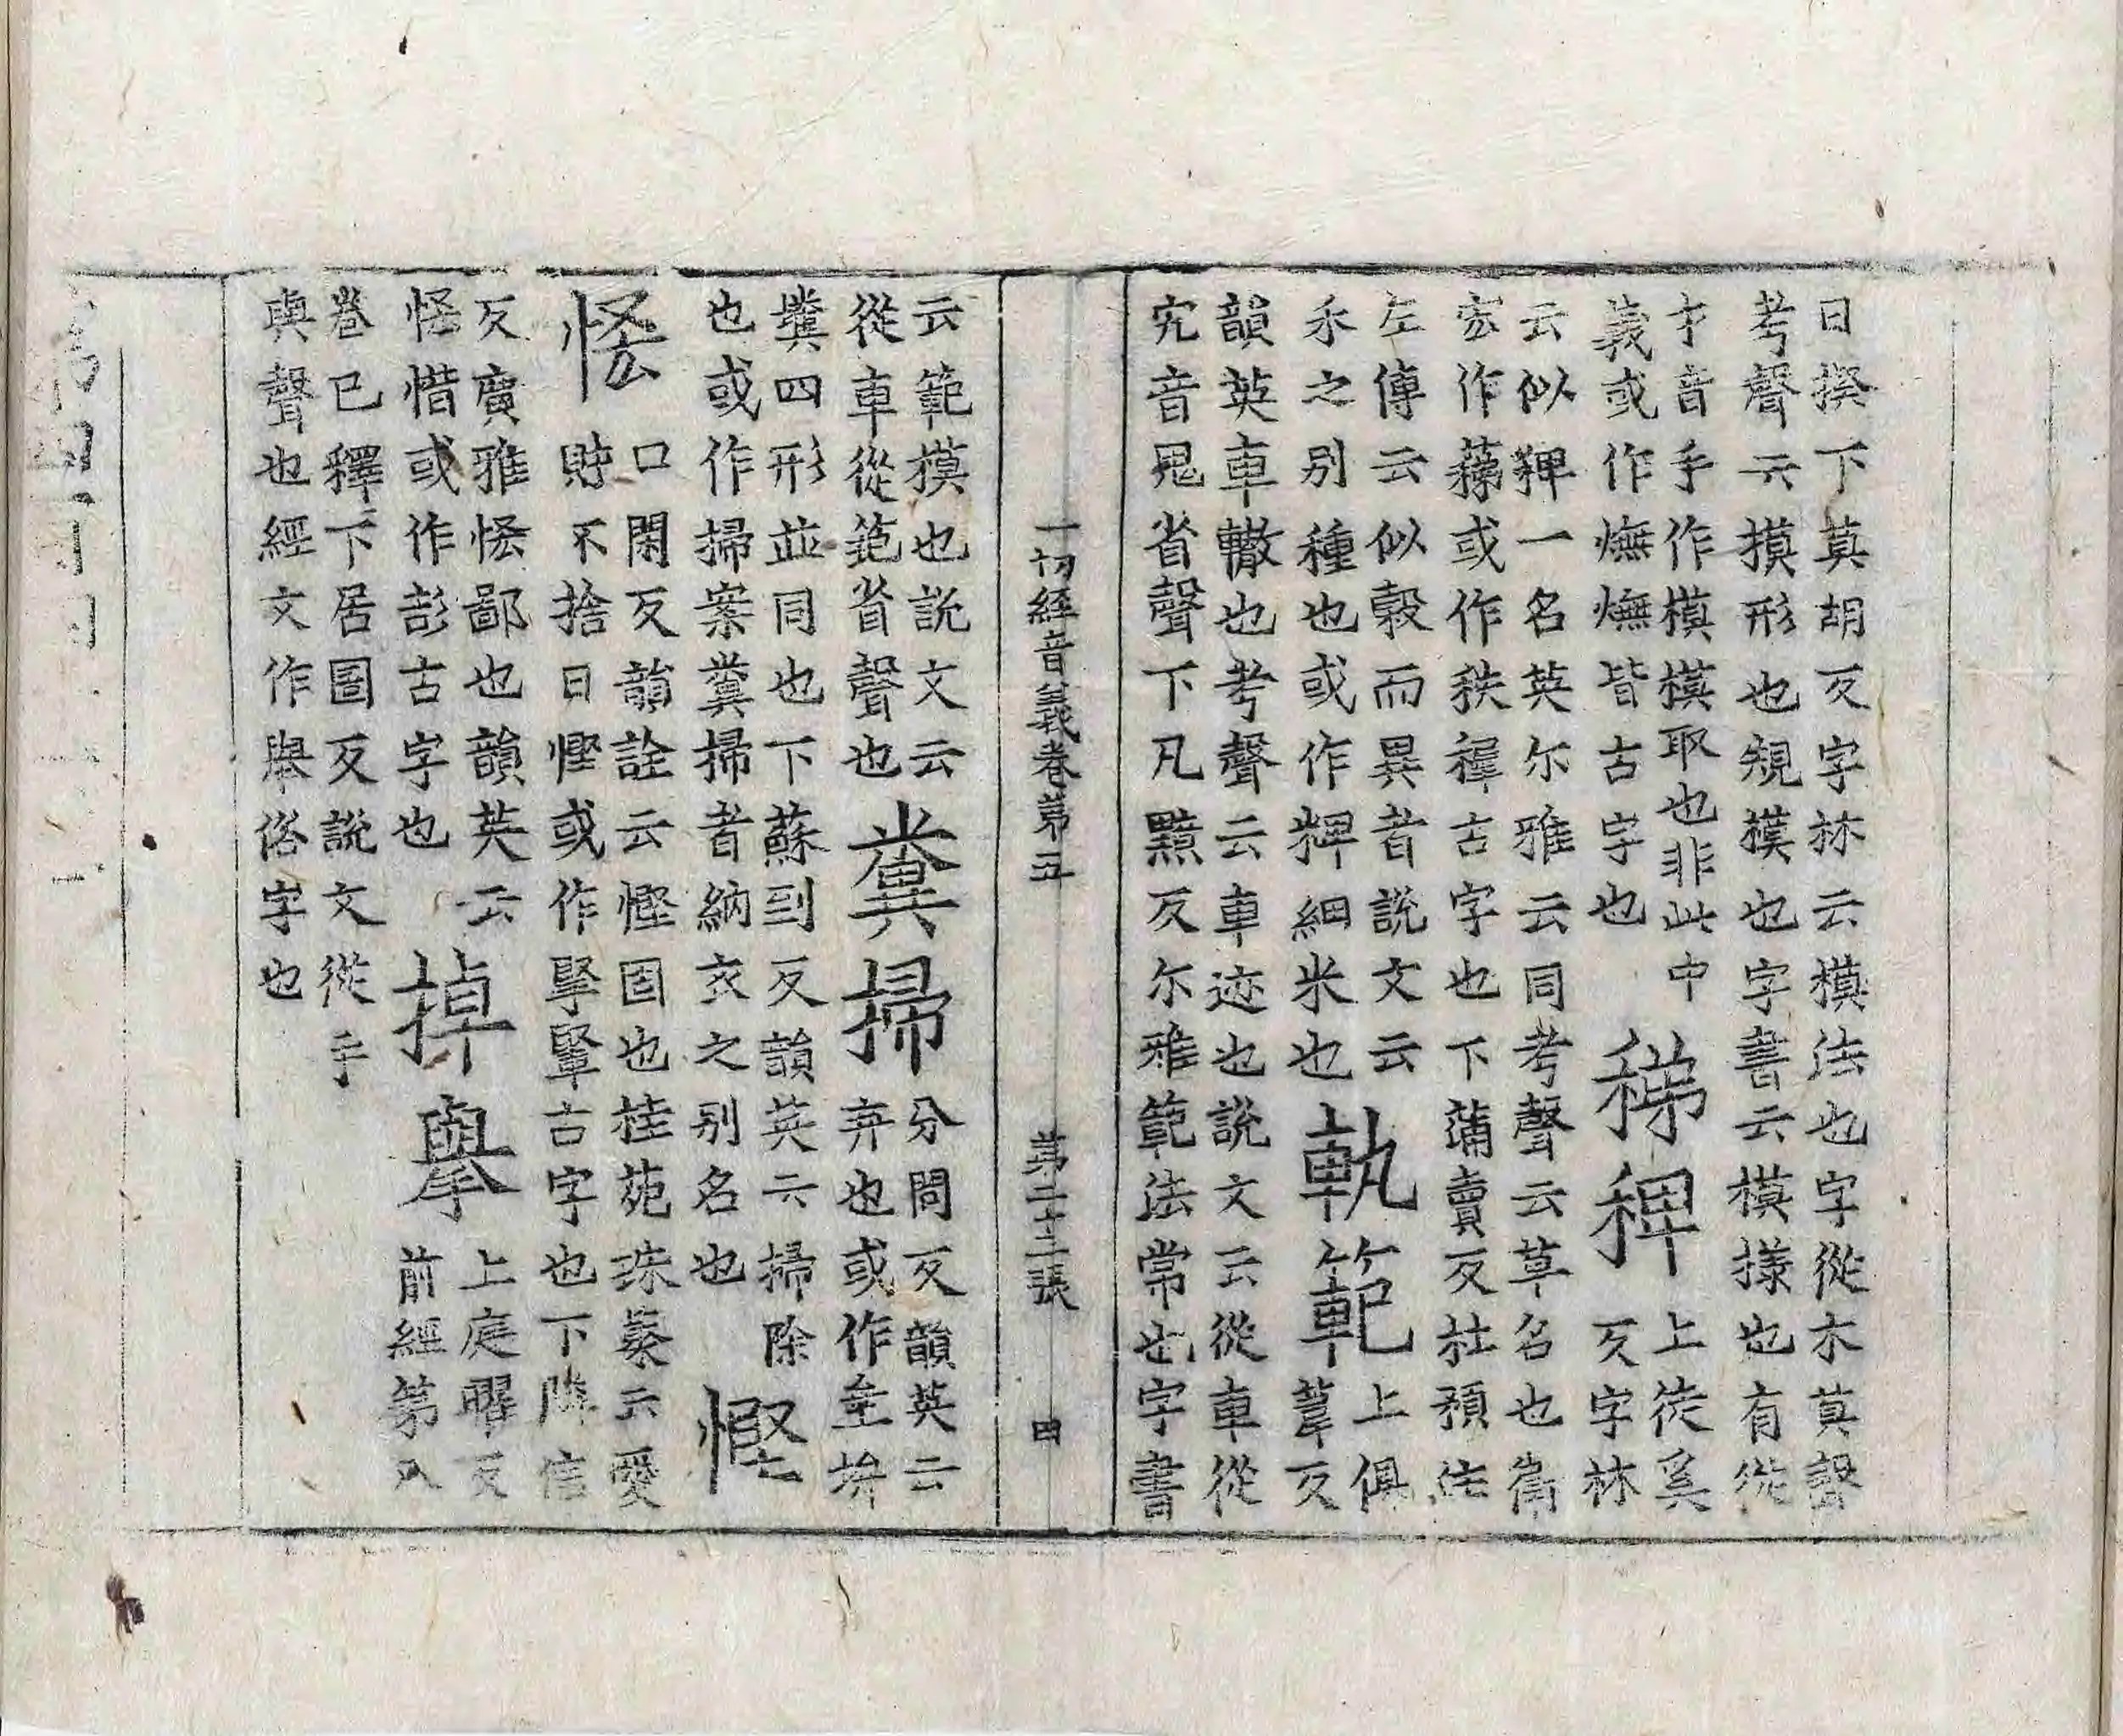 曰揆下莫胡反字林云模法也字從木莫聲
考聲云摸形也規模也字書云模㨾也有從
才音手作摸摸取也非此中
義或作橅橅皆古字也
稊稗
上徒奚
反字林
云似稗一名英尔雅云同考聲云草名也
作蕛或作秩稺古字也下蒲賣反杜預注
左傳云似穀而異者說文云
禾之别種也或作粺細米也
軌範
上俱
葦反
韻英車轍也考聲云車迹也說文云從車從
宄音鬼省聲下凡黯反尔雅範法常也字書
一切經音義卷第五 第二十二張 田
云範摸也說文云
從車從笵省聲也
糞掃
分問反韻英云
弃也或作坌
糞四形並同也下蘇到反韻英云掃除
也或作掃案糞掃者納衣之别名也
慳
悋
口閑反韻詮云慳固也桂苑珠藂云愛
財不捨曰慳或作掔古字也下隣信
反廣雅悋鄙也韻英云
悋惜或作㖁古字也
掉擧
上庭曜反
前經第八
卷已釋下居圄反說文從手
與聲也經文作舉俗字也